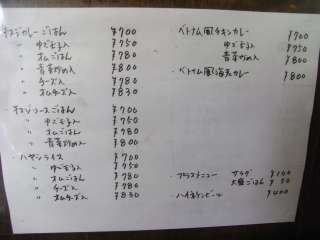 キーマカレーごはん ¥700
〃 ゆで玉子入 ¥750
〃 オムごはん ¥780
〃 青菜炒め入 ¥800
〃 チーズ入 ¥780
〃 オムチーズ入 ¥830
ソースごはん ¥700
〃 ゆで玉子入 ¥750
〃 オムごはん ¥780
〃 青菜炒め入 ¥800
ハヤシライス ¥700
〃 ゆで玉子入 ¥750
〃 オムごはん ¥780
〃 チーズ入 ¥780
〃 オムチーズ入 ¥830
ベトナム風チキンカレー ¥700
ゆで玉子入 ¥750
青菜炒め入 ¥800
ベトナム風海老カレー ¥800
プラスメニュー サラダ ¥140
大盛ごはん ¥50
ハイネケンビール ¥400